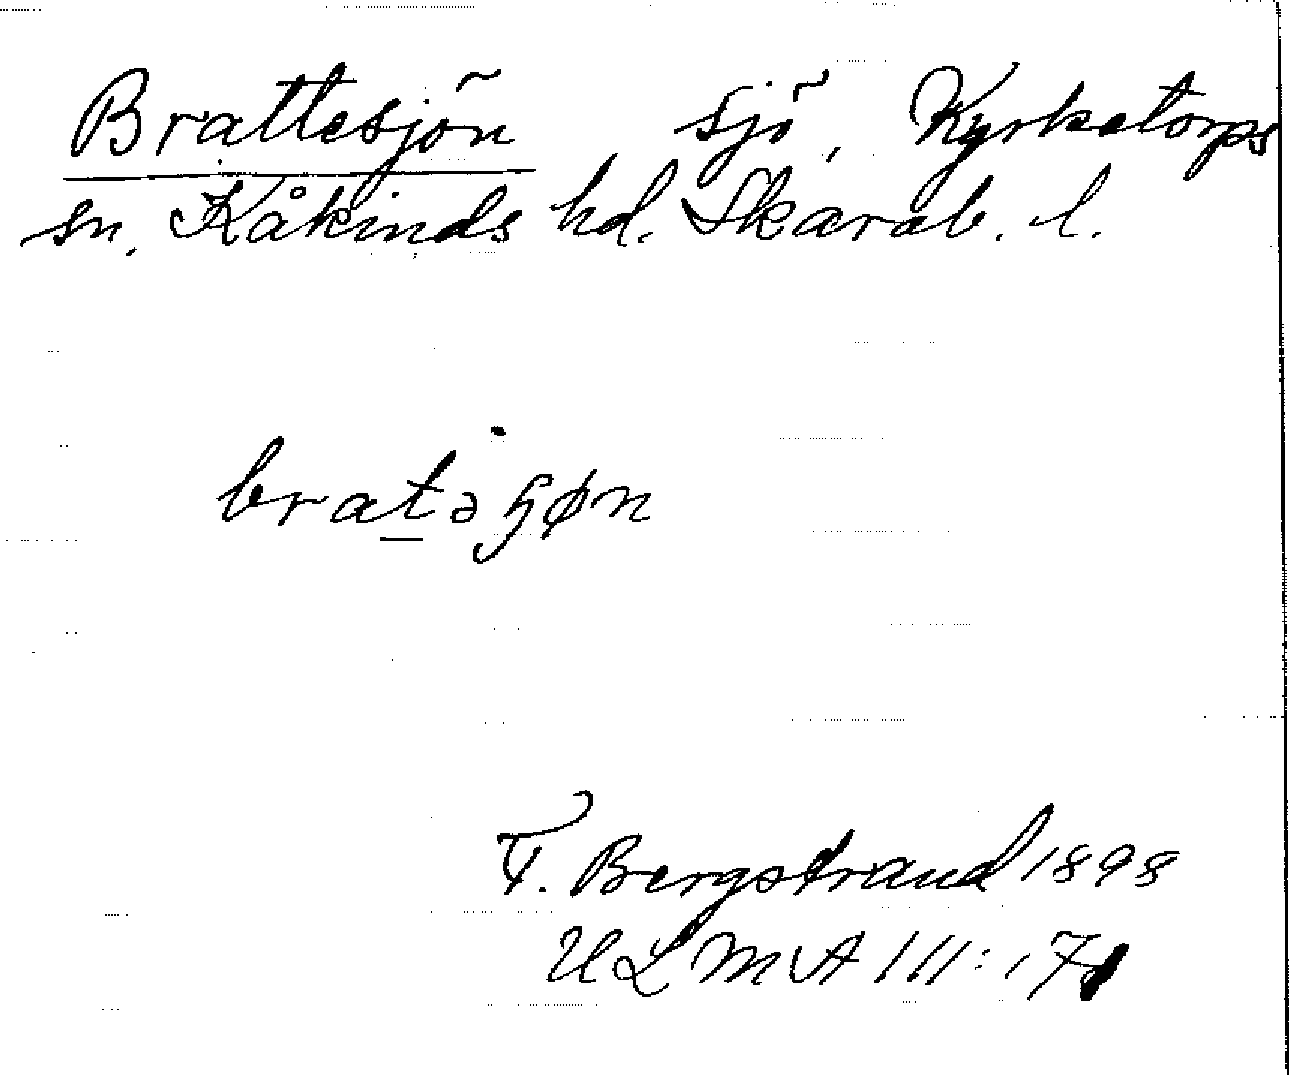 Brattesjön sjö, Kyrketorps
sn. Kåkinds hd. Skarab. l.
bratəɧøn
V. Bergstrand 1898
ULMA 111: